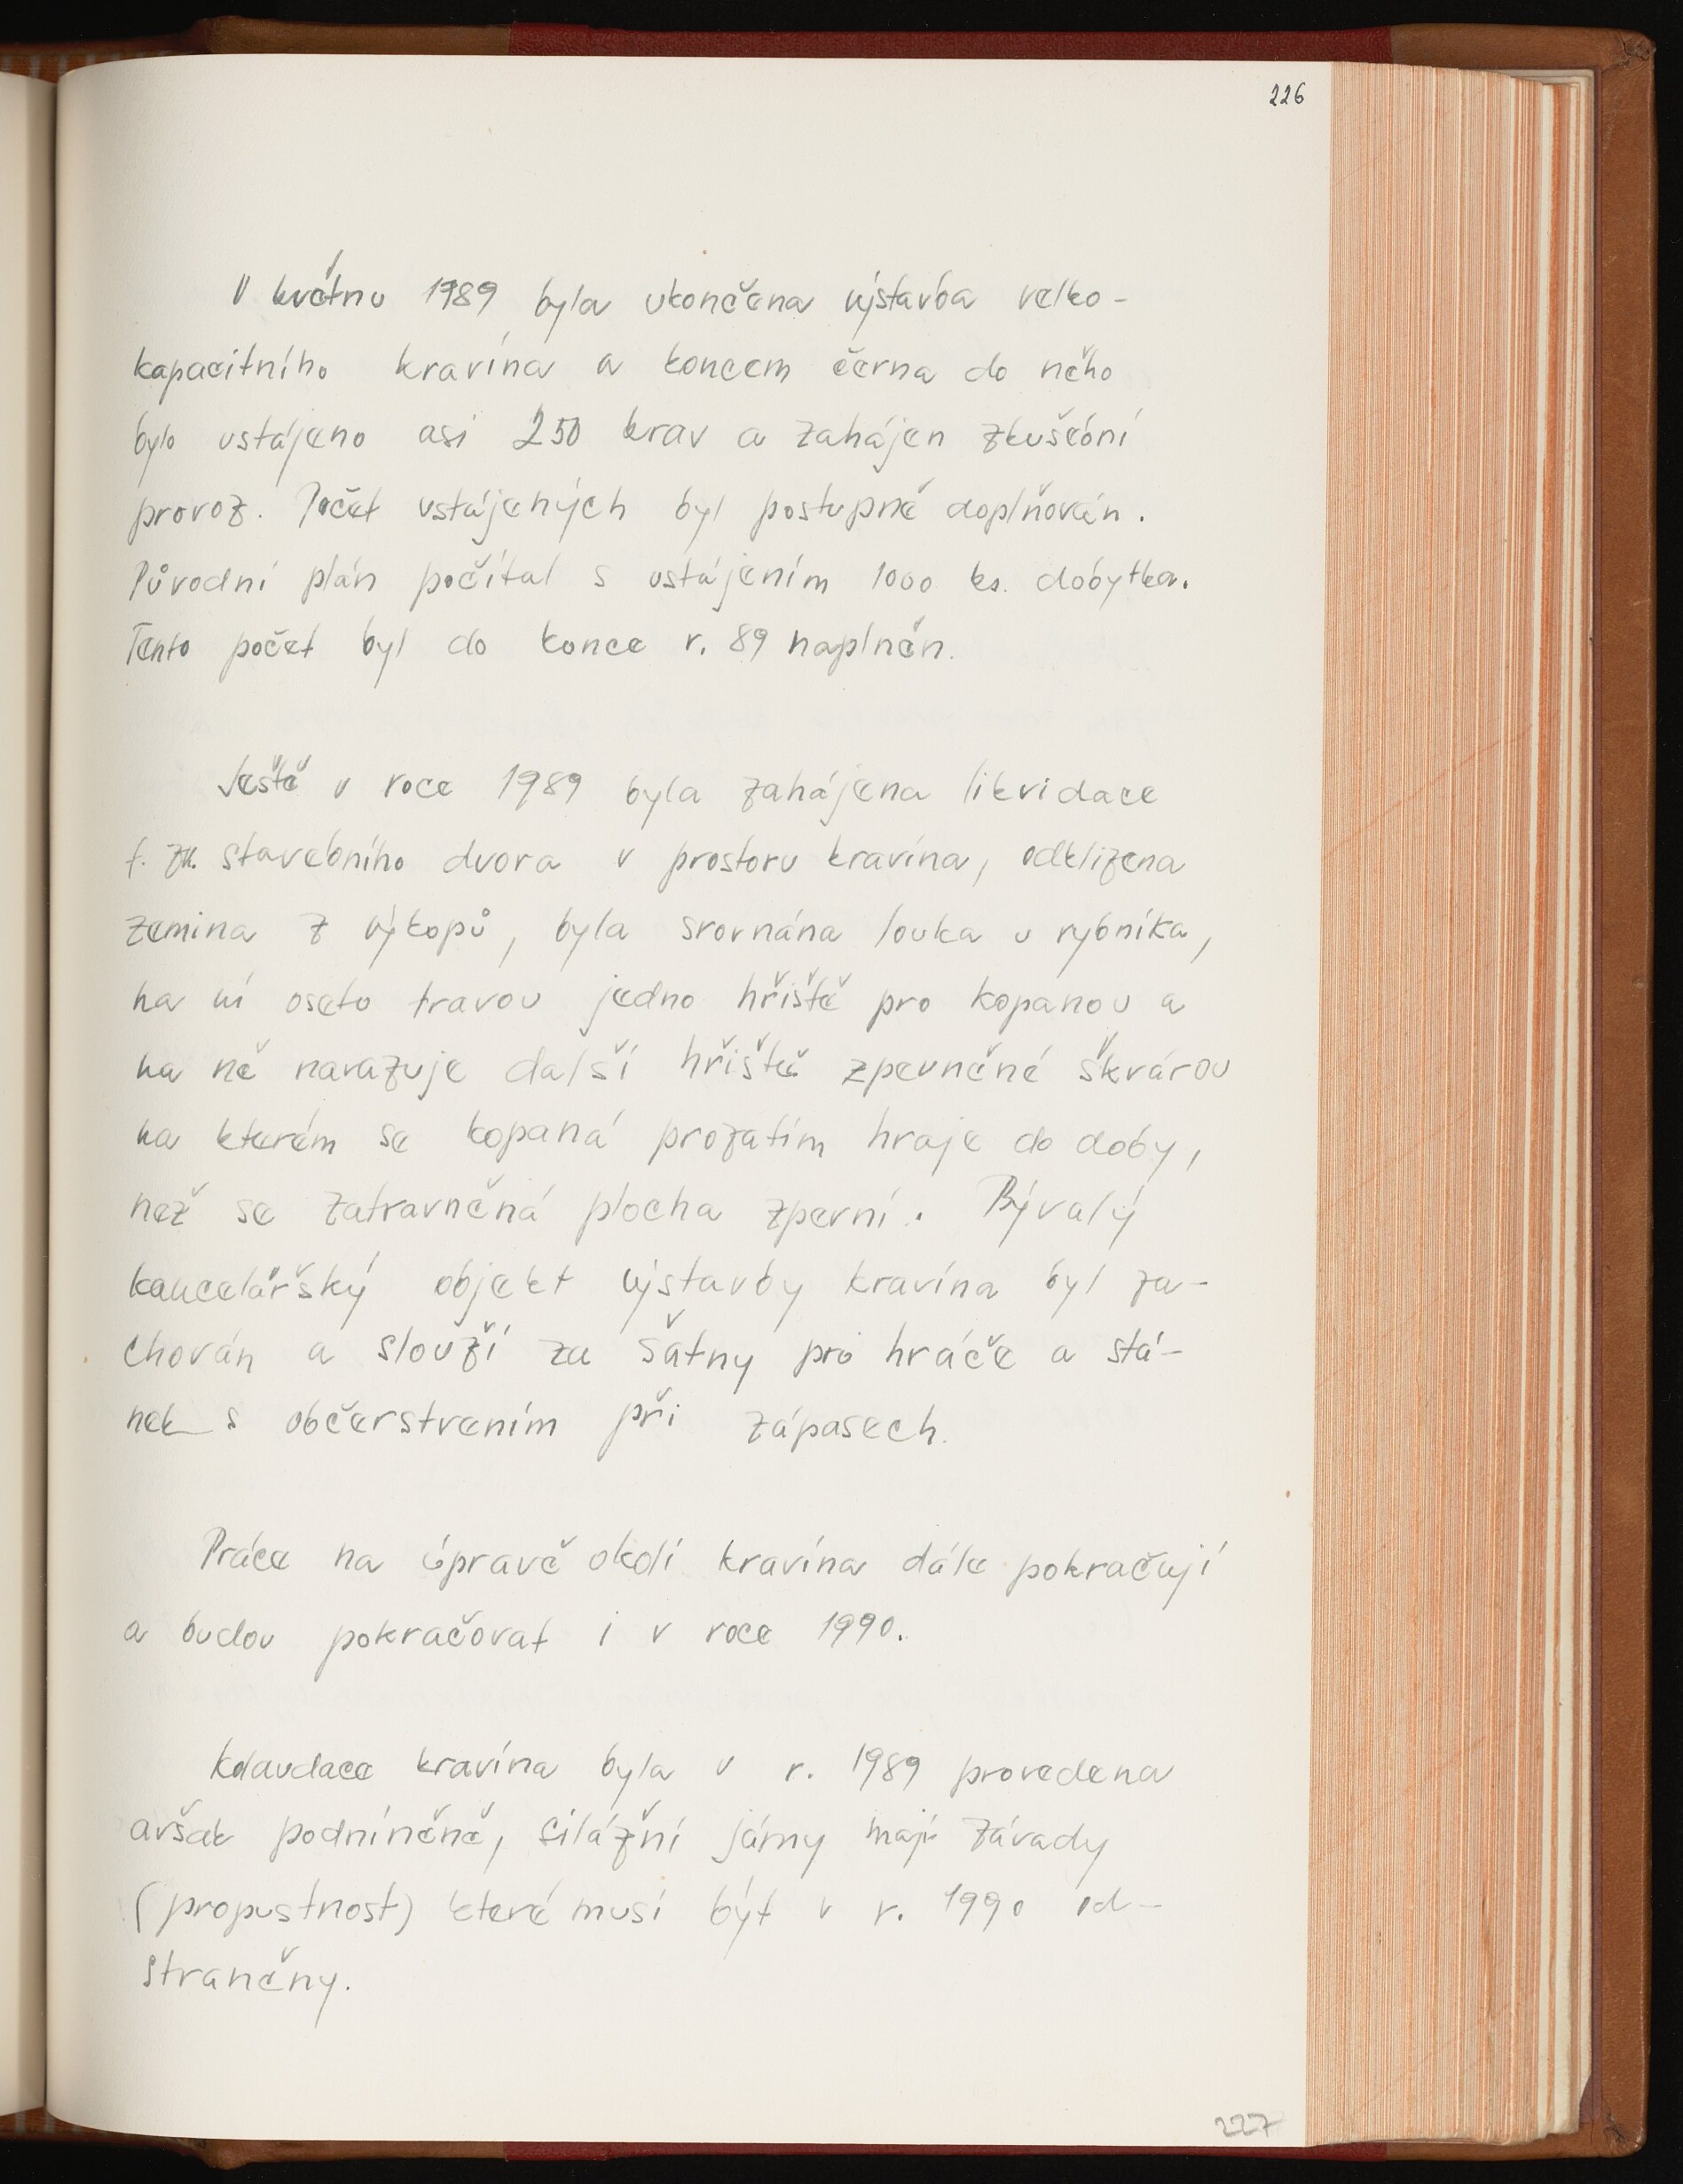 226
V květnu 1989 byla ukončena výstavba velko-
kapacitního kravína a koncem černa do něho
bylo ustájeno asi 250 krav a zahájen zkušební
provoz. Počet ustájených byl postupně doplňován.
Původní plán počítal s ustájením 1000 ks. dobytka.
Tento počet byl do konce r. 89 naplněn.
Ještě v roce 1989 byla zahájena likvidace
t. zv. stavebního dvora v prostoru kravína, odklizena
zemina z výkopů, byla srovnána louka u rybníka,
na ní oseto travou jedno hřiště pro kopanou a
na ně navazuje další hřiště zpevněné škvárou
na kterém se kopaná prozatím hraje do doby,
než se zatravněná plocha zpevní. Bývalý
kancelářský objekt výstavby kravína byl za-
chován a slouží za šatny pro hráče a stá-
nek s občerstvením při zápasech.
Práce na úpravě okolí kravína dále pokračují
a budou pokračovat i v roce 1990.
Kolaudace kravína byla v r. 1989 provedena
avšak podmíněně, silážní jámy mají závady
(propustnost) které musí být v r. 1990 od-
straněny.
227